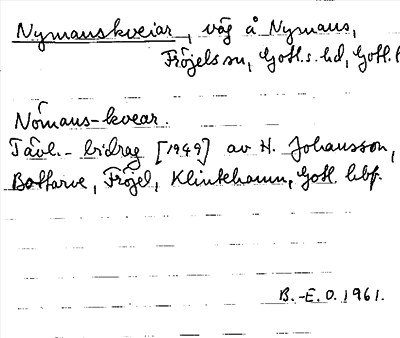 Nymanskveiar, väg å Nymans,
Fröjels sn, Gotl. s. hd, Gotl. l
Nömans-kvear.
Tävl.-bidrag [1949] av H. Johansson,
Bottarve, Fröjel, Klintehamn, Gotl. hbf.
B.-E. O. 1961.